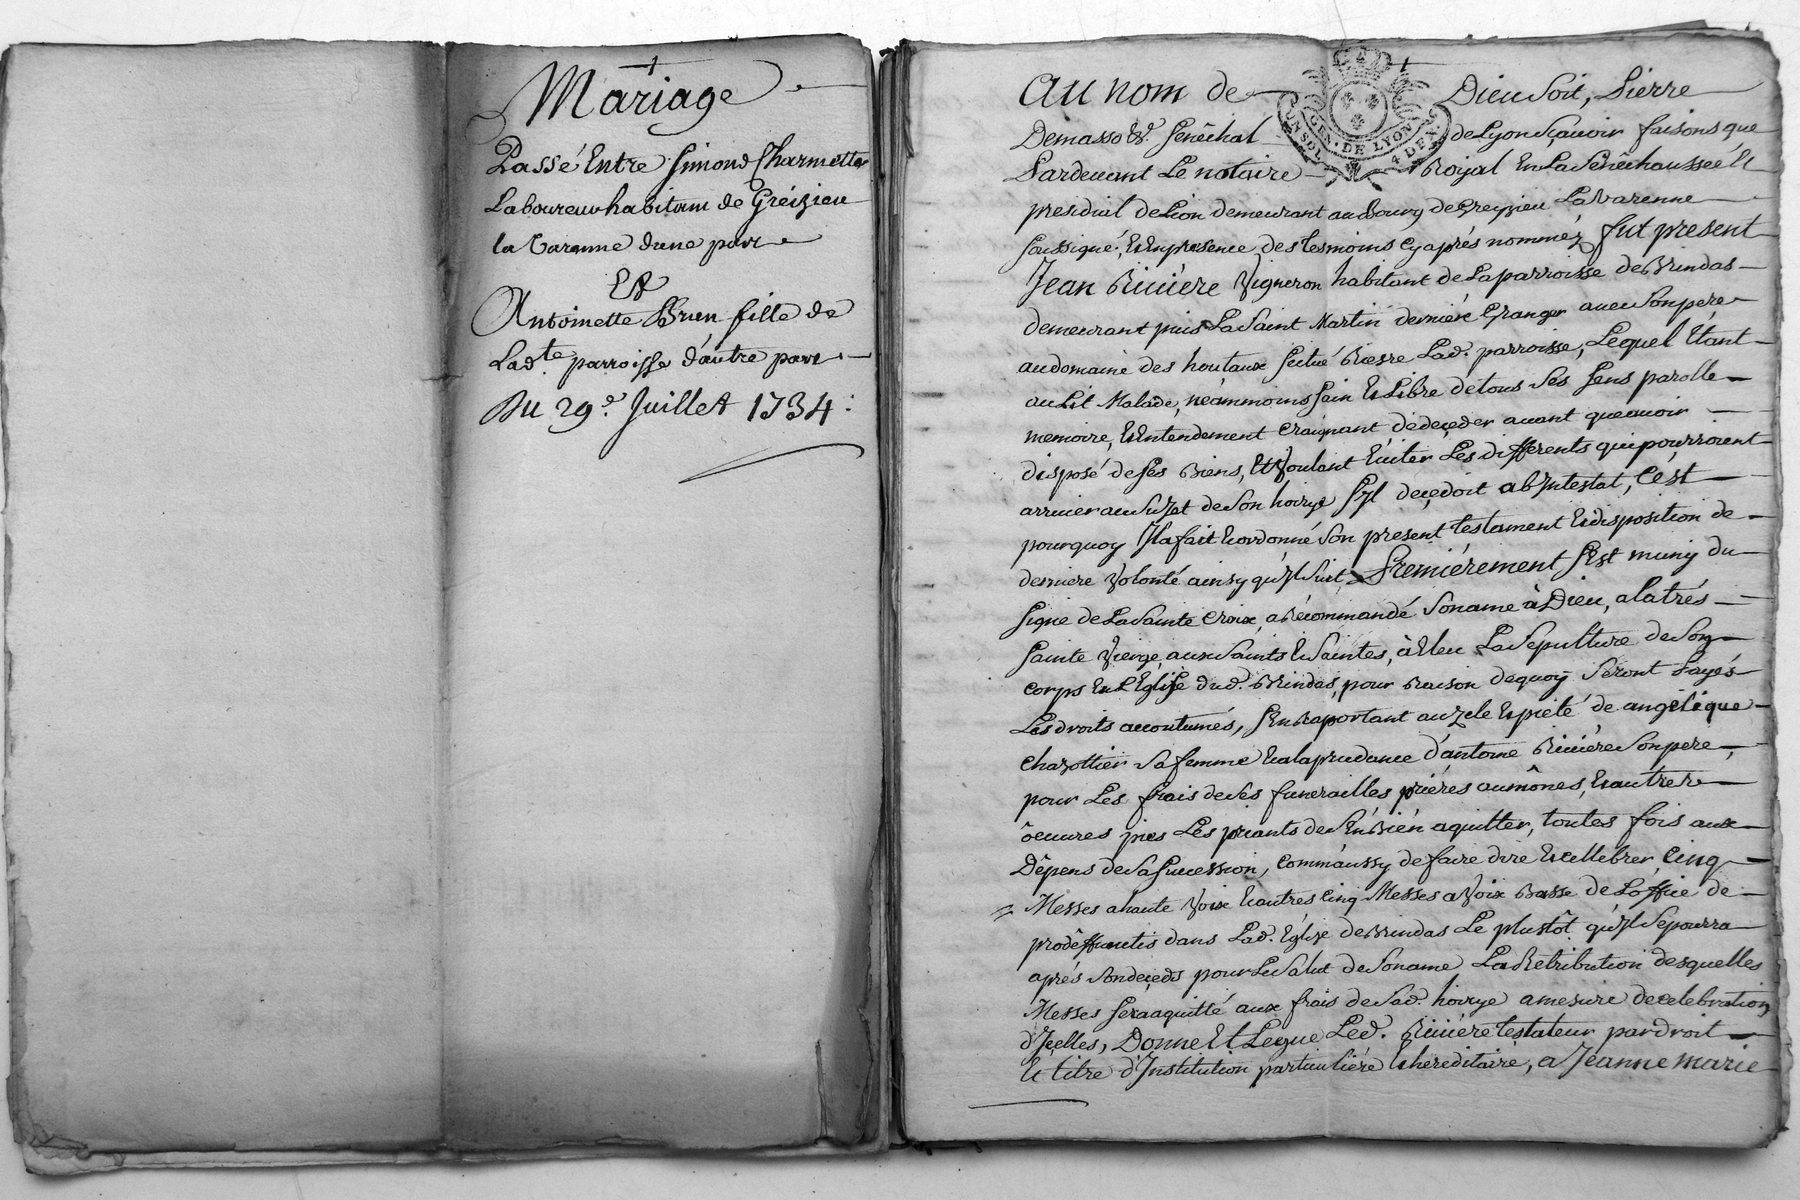 Mariage
Passé Entre Simond Charmetton
Laboureur habitant de Gréizieu
la Varenne d'une part
Et
Antoinette Brun fille de
Lad.te parroisse d'autre part
Du 29.e Juillet 1734
Au nom de Dieu Soit, Pierre
Demasso &c. Senêchal de Lyon Sçavoir faisons que
Pardevant Le notaire Roÿal En La Senêchaussée Et
presidial de Lion demeurant au Bourg de Greyzieu Lavarenne
soussigné, Et En presence des tesmoins cy aprés nomméz fut present
Jean Riviére Vigneron habitant de La parroisse de Brindas
demeurant puis La Saint Martin derniére Granger avec Son pere
au domaine des houtaux situé Riesre Lad. parroisse, Lequel Etant
au Lit Malade, néammoins Sain Et Libre de tous Ses Sens parolle
memoire, Et Entendement craignant de deçeder avant que avoir
disposé de Ses Biens, Et Voulant Eviter Les differents qui pourroient
arriver au Sujet de Son hoirye S'Jl deçedoit abJntestat, C'est
pourquoy Jl a fait Et ordonné Son present testament Et disposition de
derniere Volonté ainsy qu'Jl Suit, Premiérement S'Est muny du
Signe de La Sainte Croix, a Recommandé Son ame à Dieu, a la trés
Sainte Vierge, aux Saints Et Saintes, à Eleu La Sepulture de Son
corps En L'Eglise dud. Brindas, pour Raison de quoy Seront Payés
Les droits accoutumés, S'En Raportant au Zele Et pieté de angélique
Chazottier Sa femme Et a la prudance d'antoine Riviére Son pere,
pour Les frais de Ses funerailles priéres aumônes, Et autres
ôeuvres pies Les priants de S'En Bien aquitter, toutes fois aux
Dépens de Sa Succession, comm'aussy de faire dire Et cellebrer Cinq
Messes a haute Voix Et autres Cinq Messes a Voix Basse de L'office de
prodêffunctis dans Lad. Eglise de Brindas Le plustôt qu'Jl Se pourra
aprés Son deçeds pour Le Salut de Son ame La Retribution desquelles
Messes Sera aquitté aux frais de Sad. hoirye a mesure de celebration
d'Jçelles, Donne Et Legue Led. Riviére testateur par droit
Et titre d'Jnstitution particuliére Et hereditaire, a Jeanne marie
GEN. DE LYON
4 DEN.